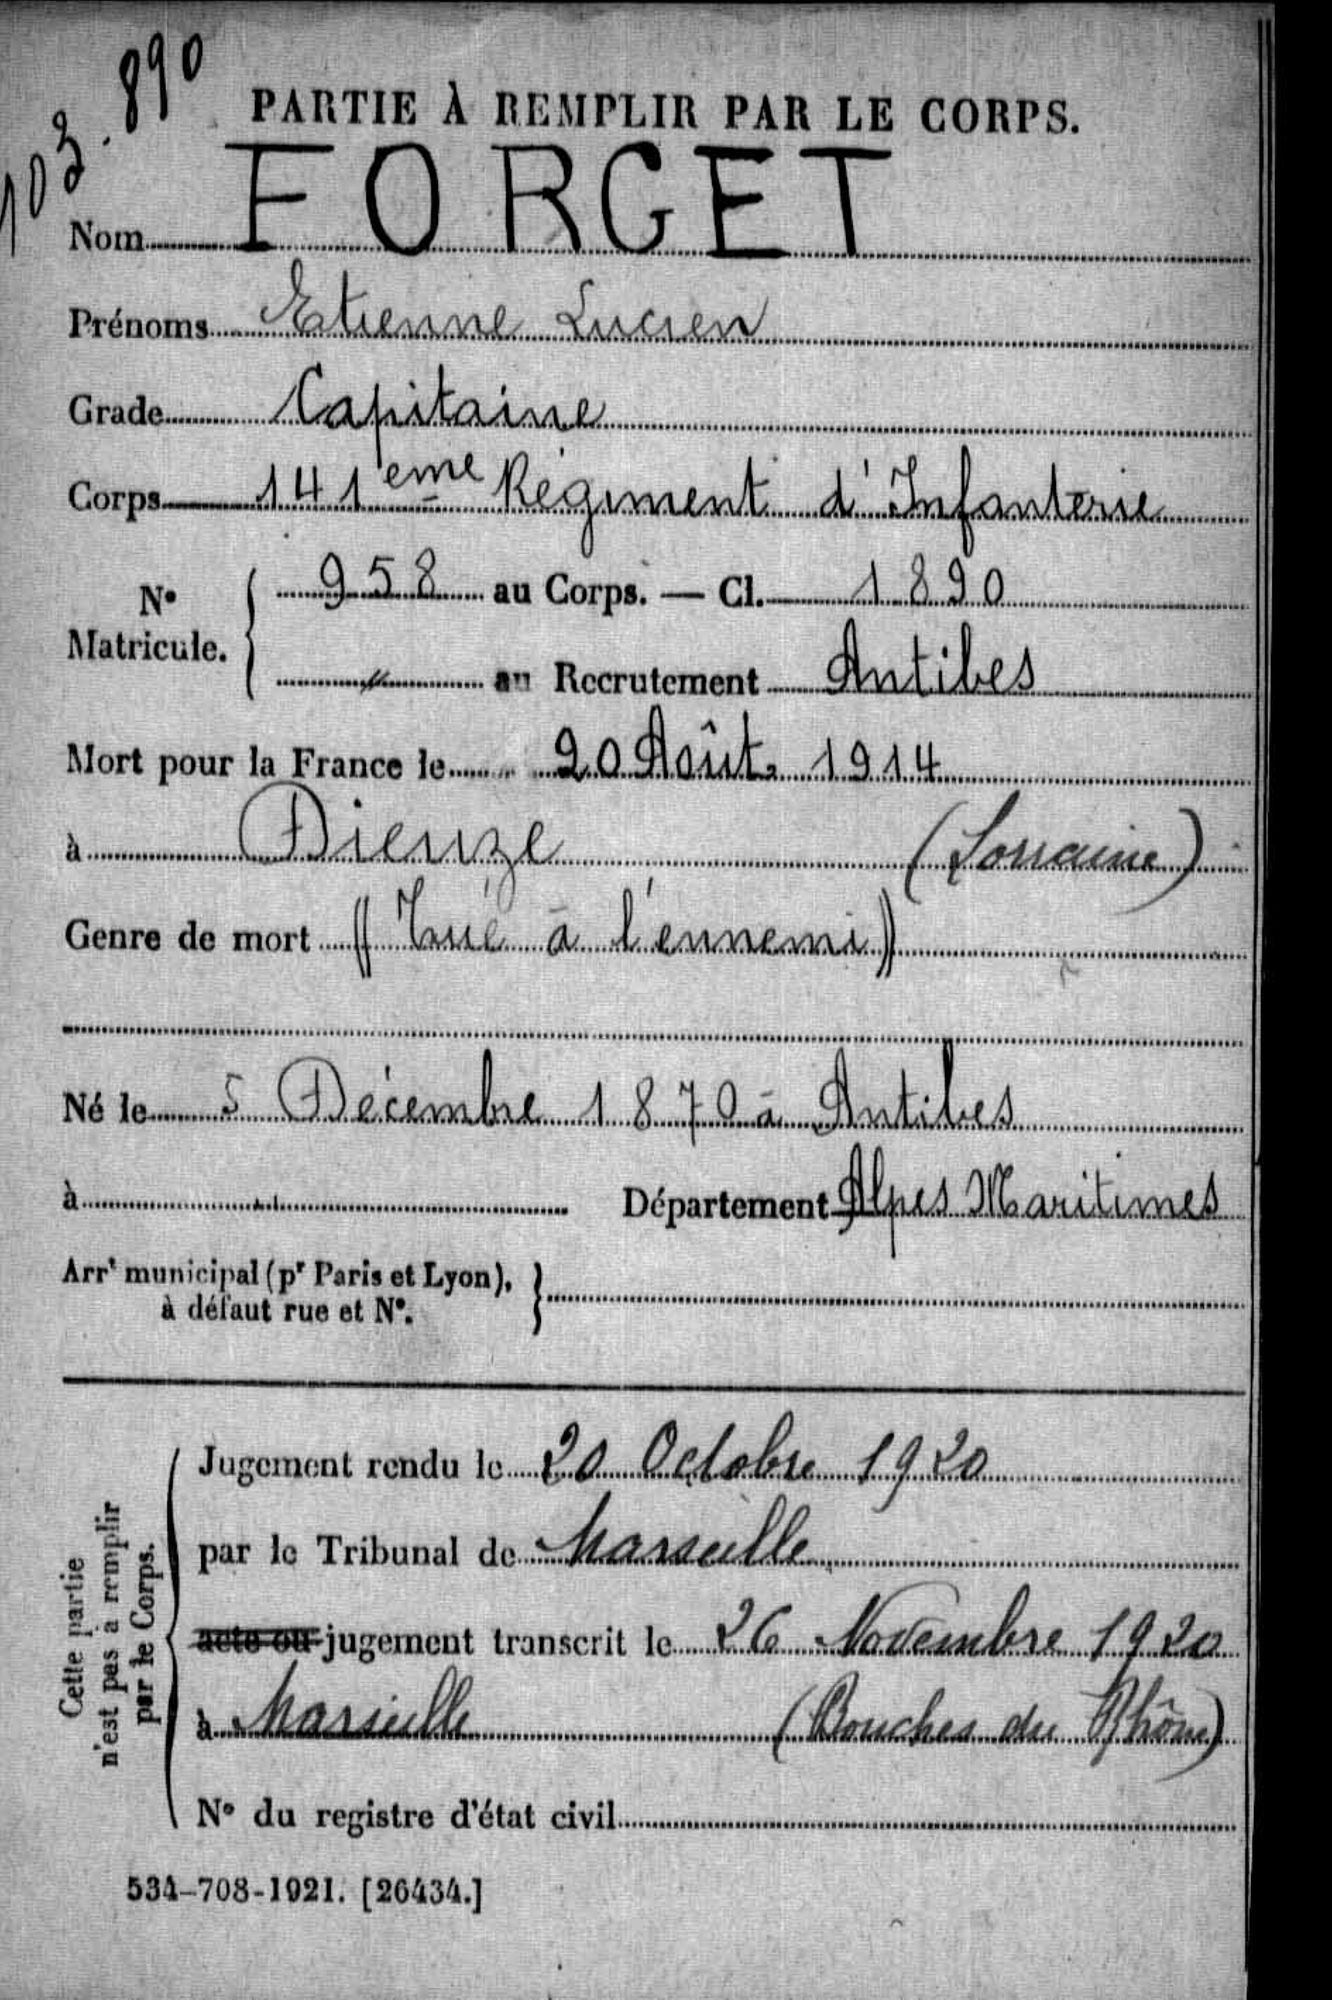 103.890
PARTIE À REMPLIR PAR LE CORPS.
Nom FORGET
Prénoms Etienne Lucien
Grade Capitaine
Corps 141eme Régiment d'Infanterie
N° Matricule. { 958 au Corps. — Cl. 1890
" au Recrutement Antibes
Mort pour la France le 20 Août 1914
à Dieuze (Lorraine)
Genre de mort (( Tué à l'ennemi ))
Né le 5 Décembre 1870 à Antibes
à Département Alpes Maritimes
Arrt municipal (pr Paris et Lyon), }
à défaut rue et N°.
Cette partie
n'est pas à remplir
par le Corps.
Jugement rendu le 20 Octobre 1920
par le Tribunal de Marseille
acte ou jugement transcrit le 26 Novembre 1920
à Marseille (Bouches du Rhône)
N° du registre d'état civil
534-708-1921. [26434.]